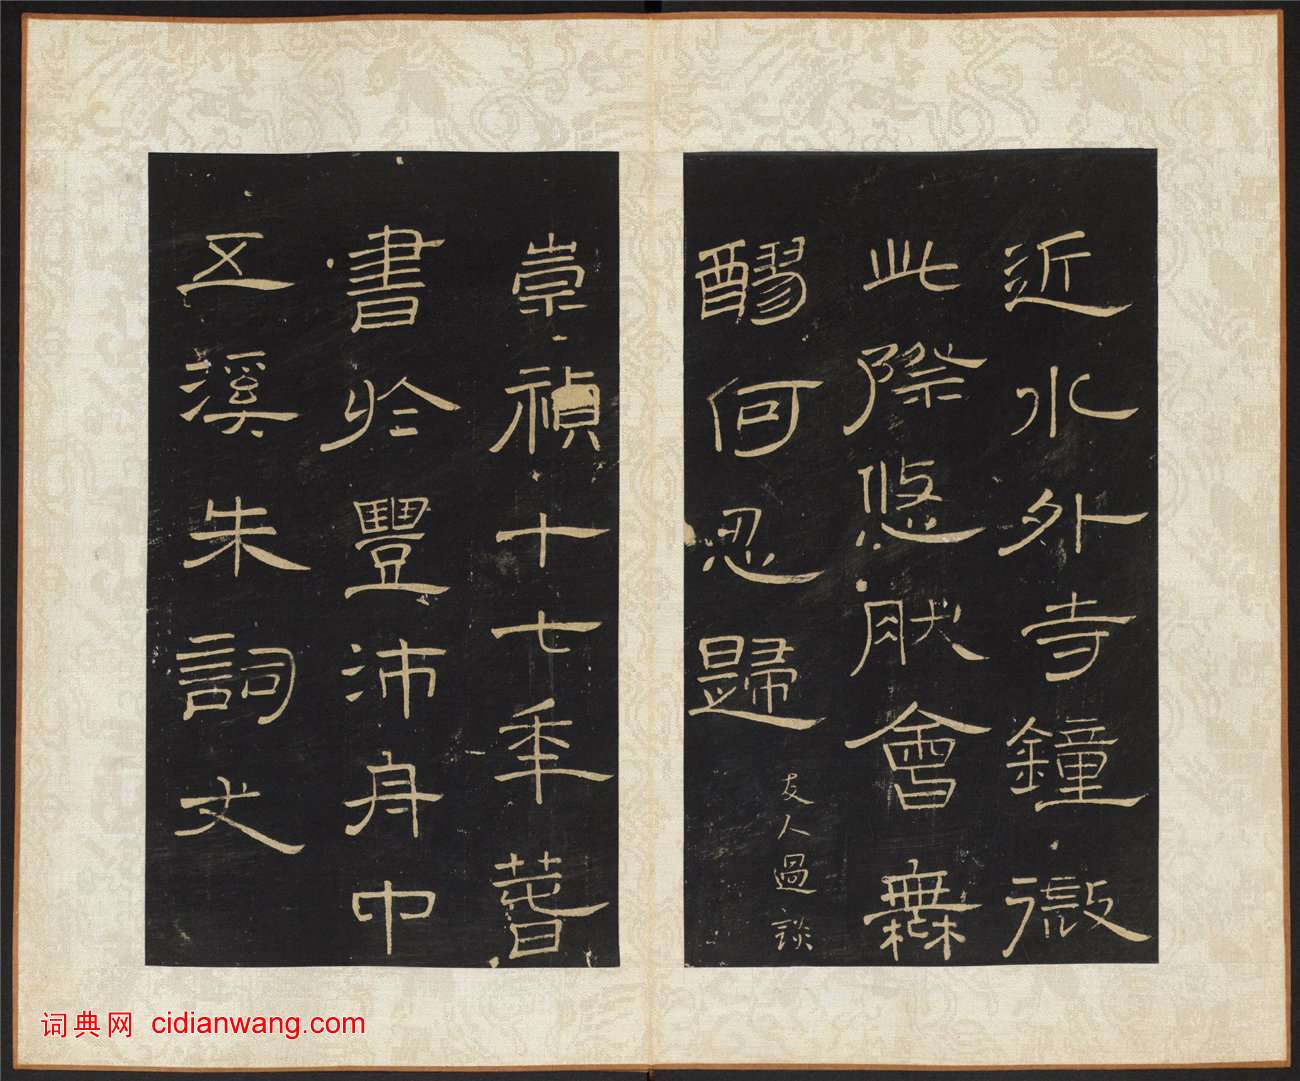 近水外寺鐘微
此際悠肰會無
醪何忍歸
友人過談
崇禎十七年春
書於豐沛舟中
五溪朱詞文
词典网 cidianwang.com